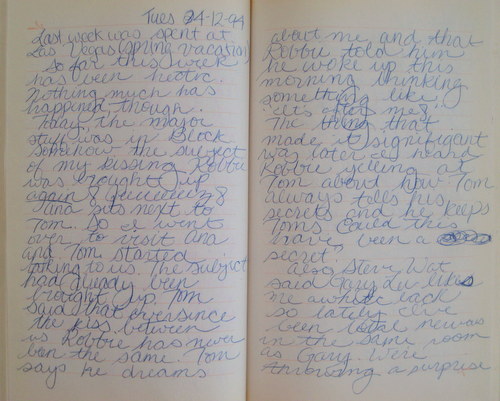 Tues 04-12-94
Last week was spent at
Las Vegas (spring vacation)
so far this week
has been hectic.
Nothing much has
happened though.
Today the major
stuff was in Block
Somehow the subject
of my kissing Robbie
was brought up
again
Ana sits next to
Tom. So I went
over to visit Ana
and Tom started
talking to us. The subject
had already been
brought up. Tom
said that ever since
the kiss between
us Robbie has never
been the same. Tom
says he dreams
about me and that
Robbie told him
he woke up this
morning thinking
something like,
after me?
The thing that
made it significant
was later I heard
Robbie yelling at
Tom about how Tom
always tells his
secrets and he keeps
Toms. Could this
have been a
secret?
Also Steve Wat
said Gary Lu likes
me awhile back
so lately I've
been total nervous
in the same room
as Gary. Were
throwing a surprise